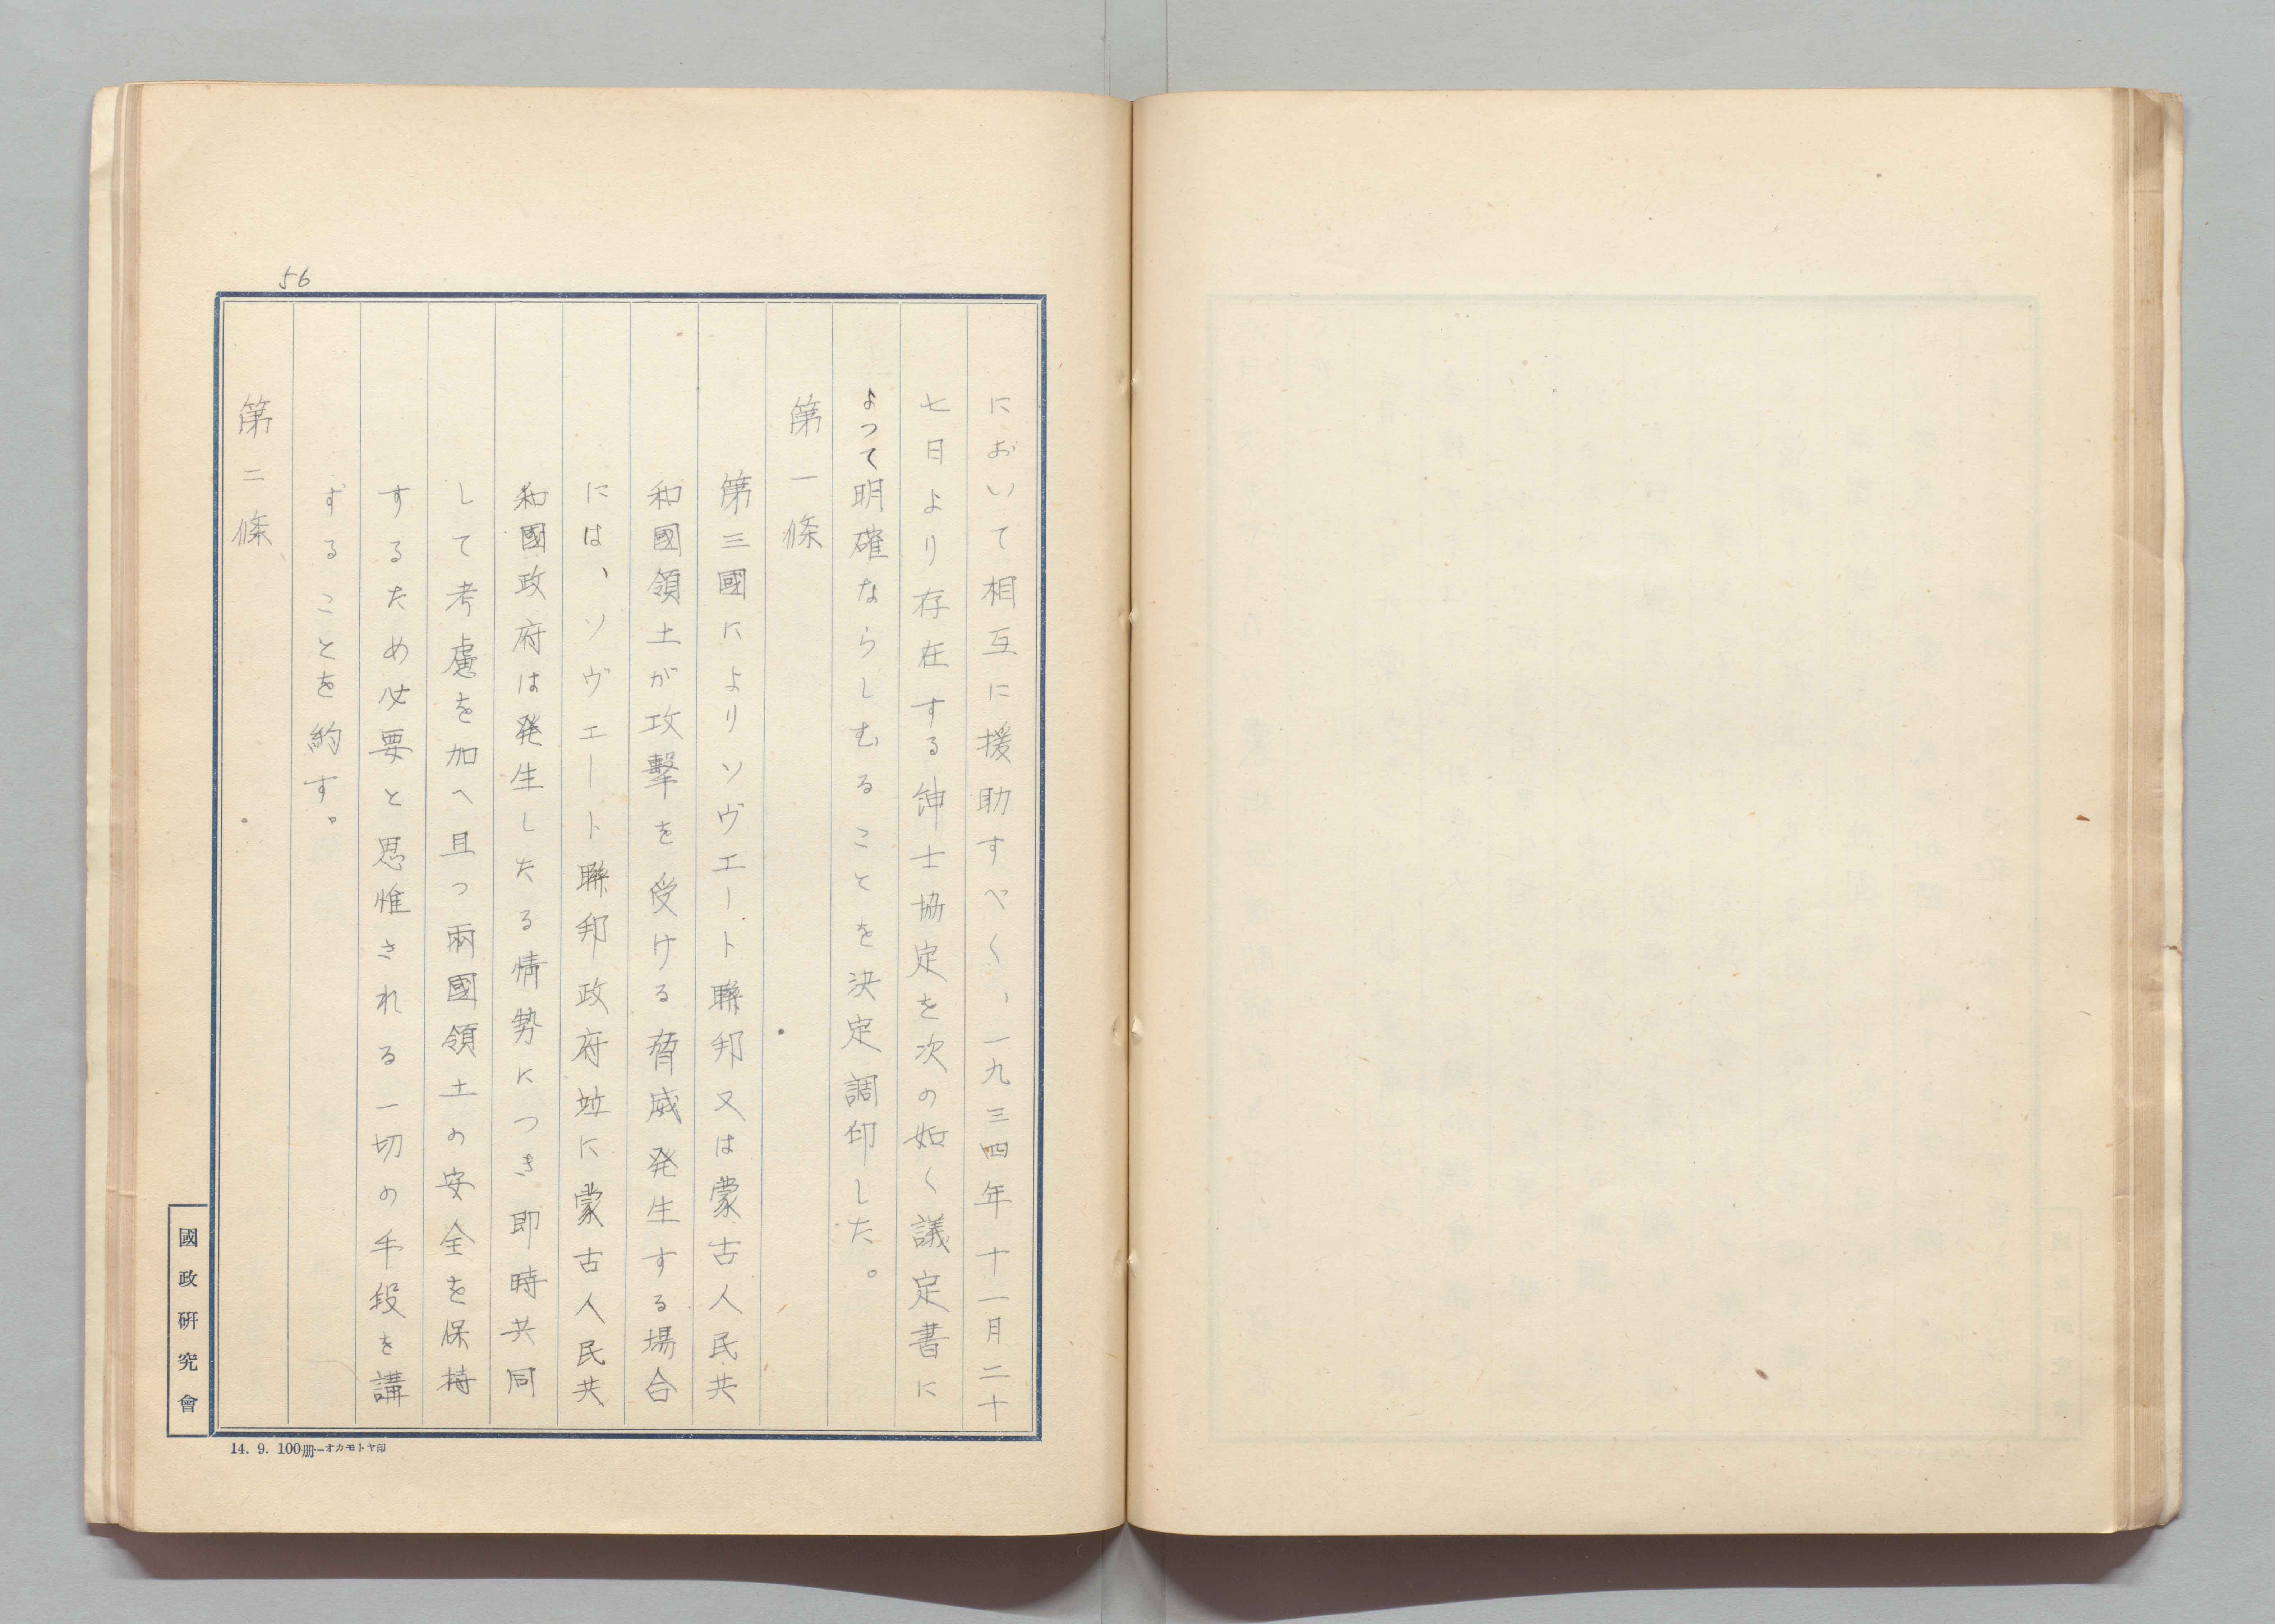 56
において相互に援助すべく、一九三四年十一月二十
七日より存在する紳士協定を次の如く議定書に
よつて明確ならしむることを決定調印した。
第一條
第三國によりソヴエート聯邦又は蒙古人民共
和國領土が攻擊を受ける脅威発生する場合
には、ソヴエート聯邦政府竝に蒙古人民共
和國政府は発生したる情勢につき即時共同
して考慮を加へ且つ兩國領土の安全を保持
するため必要と思惟される一切の手段を講
ずることを約す。
第二條
國政硏究會
14. 9. 100册―オカモトヤ印